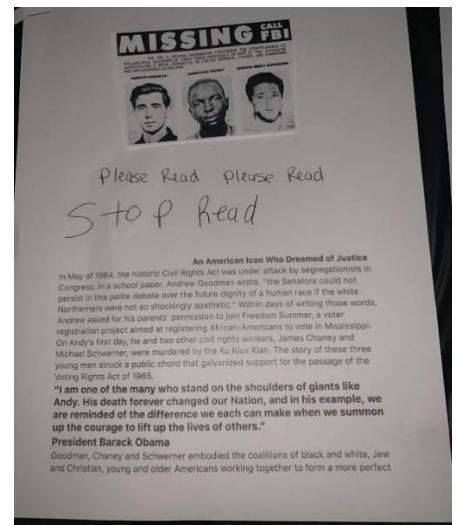 MISSING CALL FBI
ANDREW GOODMAN
JAMES EARL CHANEY
MICHAEL HENRY SCHWERNER
Please Read Please Read
Stop Read
An American Icon Who Dreamed of Justice
In May of 1964, the historic Civil Rights Act was under attack by segregationists in
Congress. In a school paper, Andrew Goodman wrote, "the Senators could not
persist in this polite debate over the future dignity of a human race if the white
Northerners were not so shockingly apathetic." Within days of writing those words,
Andrew asked for his parents' permission to join Freedom Summer, a voter
registration project aimed at registering African-Americans to vote in Mississippi.
On Andy's first day, he and two other civil rights workers, James Chaney and
Michael Schwerner, were murdered by the Ku Klux Klan. The story of these three
young men struck a public chord that galvanized support for the passage of the
Voting Rights Act of 1965.
"I am one of the many who stand on the shoulders of giants like
Andy. His death forever changed our Nation, and in his example, we
are reminded of the difference we each can make when we summon
up the courage to lift up the lives of others."
President Barack Obama
Goodman, Chaney and Schwerner embodied the coalitions of black and white, Jew
and Christian, young and older Americans working together to form a more perfect